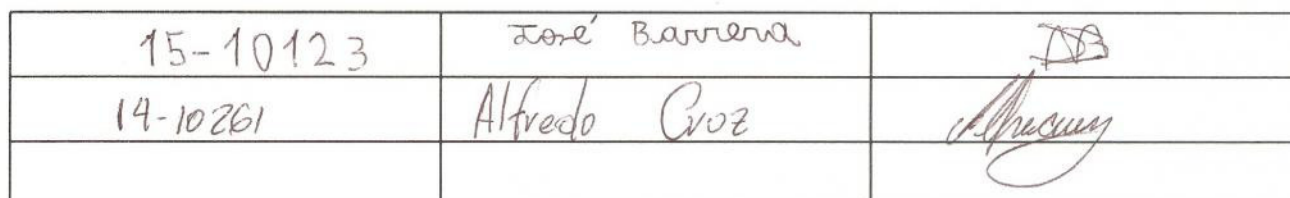 15-10123 José Barrera
14-10261 Alfredo Croz